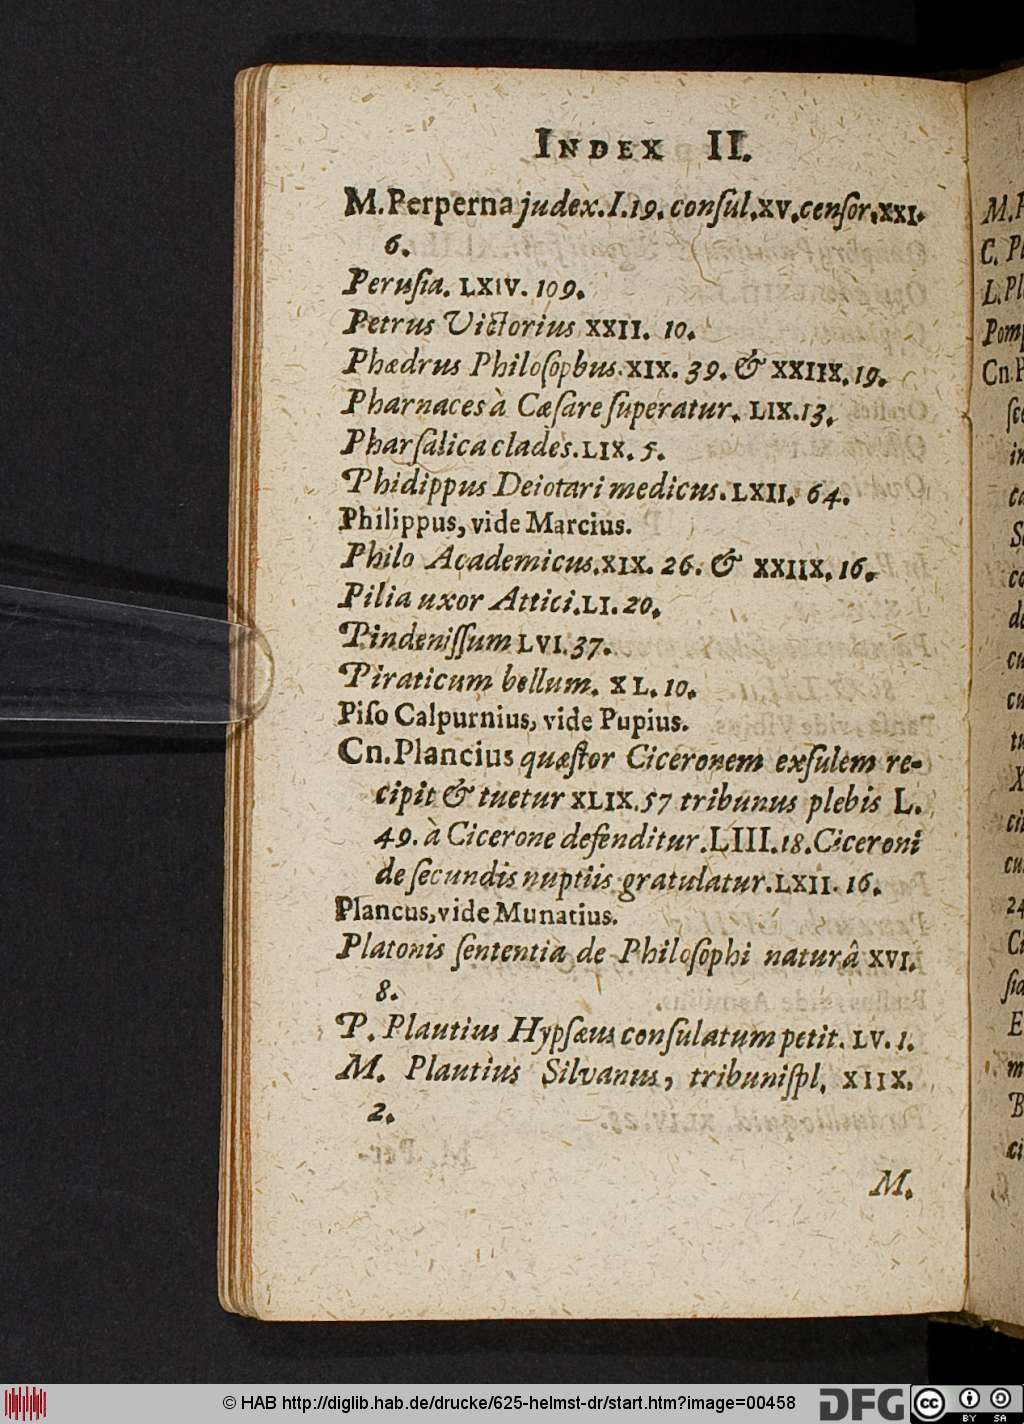 INDEX II.
M. Perperna judex. I. 19. conſul. XV. cenſor. XXI.
6.
Peruſia. LXIV. 109.
Petrus Victorius XXII. 10.
Phædrus Philoſophus. XIX. 39. & XXIIX. 19.
Pharnaces à Cæſare ſuperatur. LIX. 13.
Pharſalica clades. LIX. 5.
Phidippus Deiotari medicus. LXII. 64.
Philippus, vide Marcius.
Philo Academicus. XIX. 26. & XXIIX. 16.
Pilia uxor Attici. LI. 20.
Pindeniſſum LVI. 37.
Piraticum bellum. XL. 10.
Piſo Calpurnius, vide Pupius.
Cn. Plancius quæſtor Ciceronem exſulem re-
cipit & tuetur XLIX. 57 tribunus plebis L.
49. à Cicerone defenditur. LIII. 18. Ciceroni
de ſecundis nuptiis gratulatur. LXII. 16.
Plancus, vide Munatius.
Platonis ſententia de Philoſophi naturâ XVI.
8.
P. Plautius Hypſæus conſulatum petit. LV. 1.
M. Plautius Silvanus, tribuniſpl. XIIX.
2.
M.
© HAB http://diglib.hab.de/drucke/625-helmst-dr/start.htm?image=00458
DFG
cc BY SA